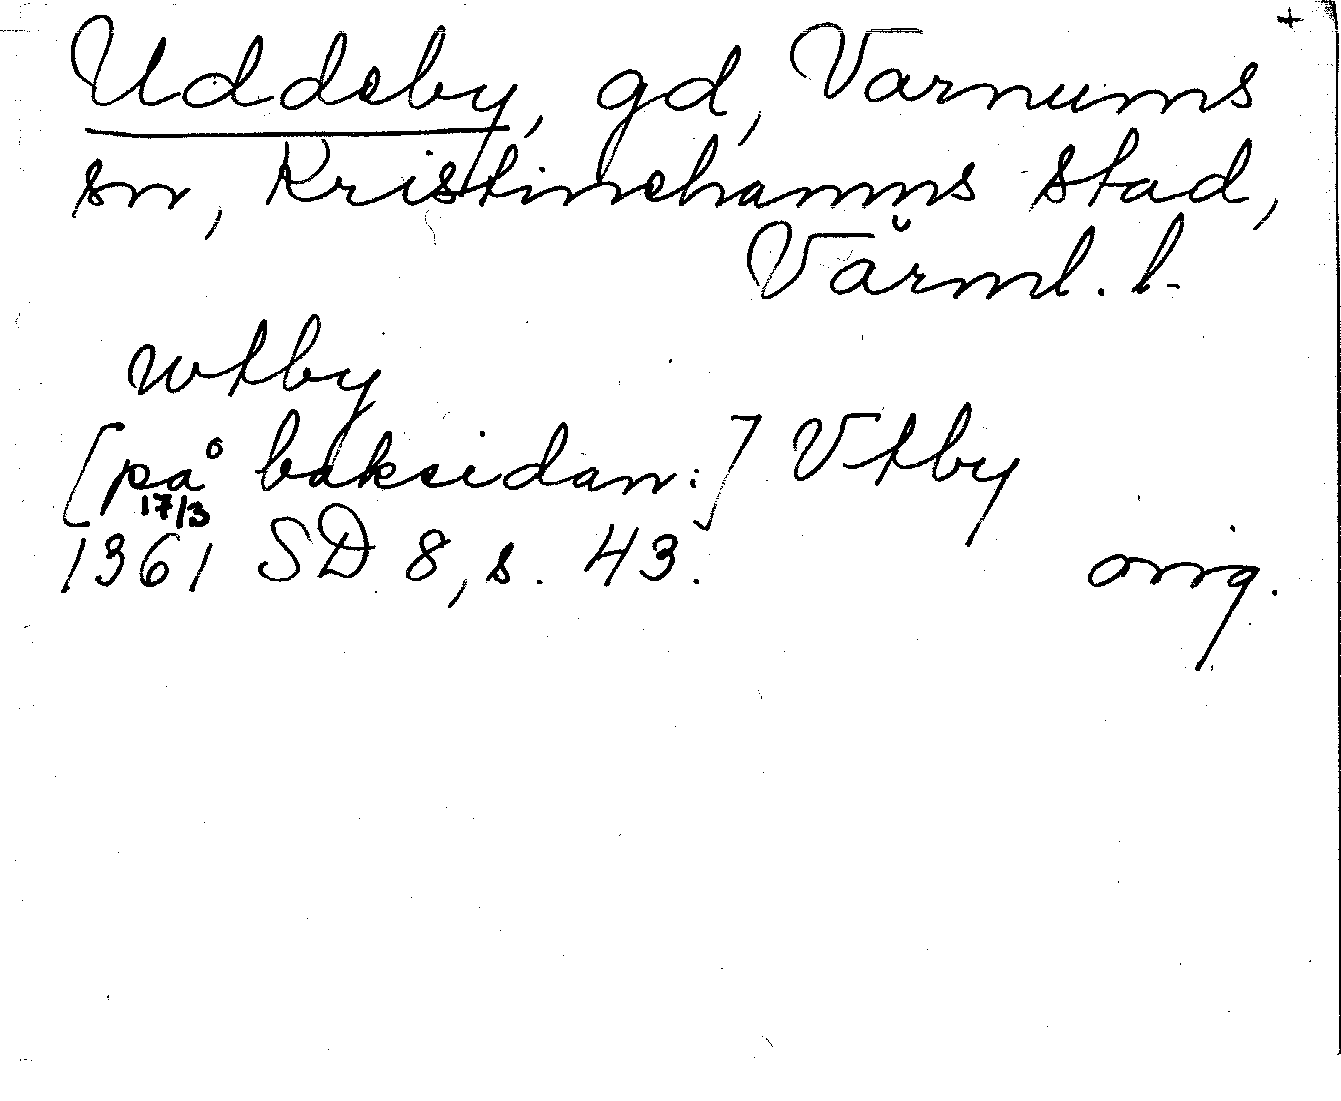 +
Uddeby, gd, Varnums
sn, Kristinehamns stad,
Värml. l.
wtby
[på baksidan:] Vtby
17/3
1361 SD 8, s. 43. orig.